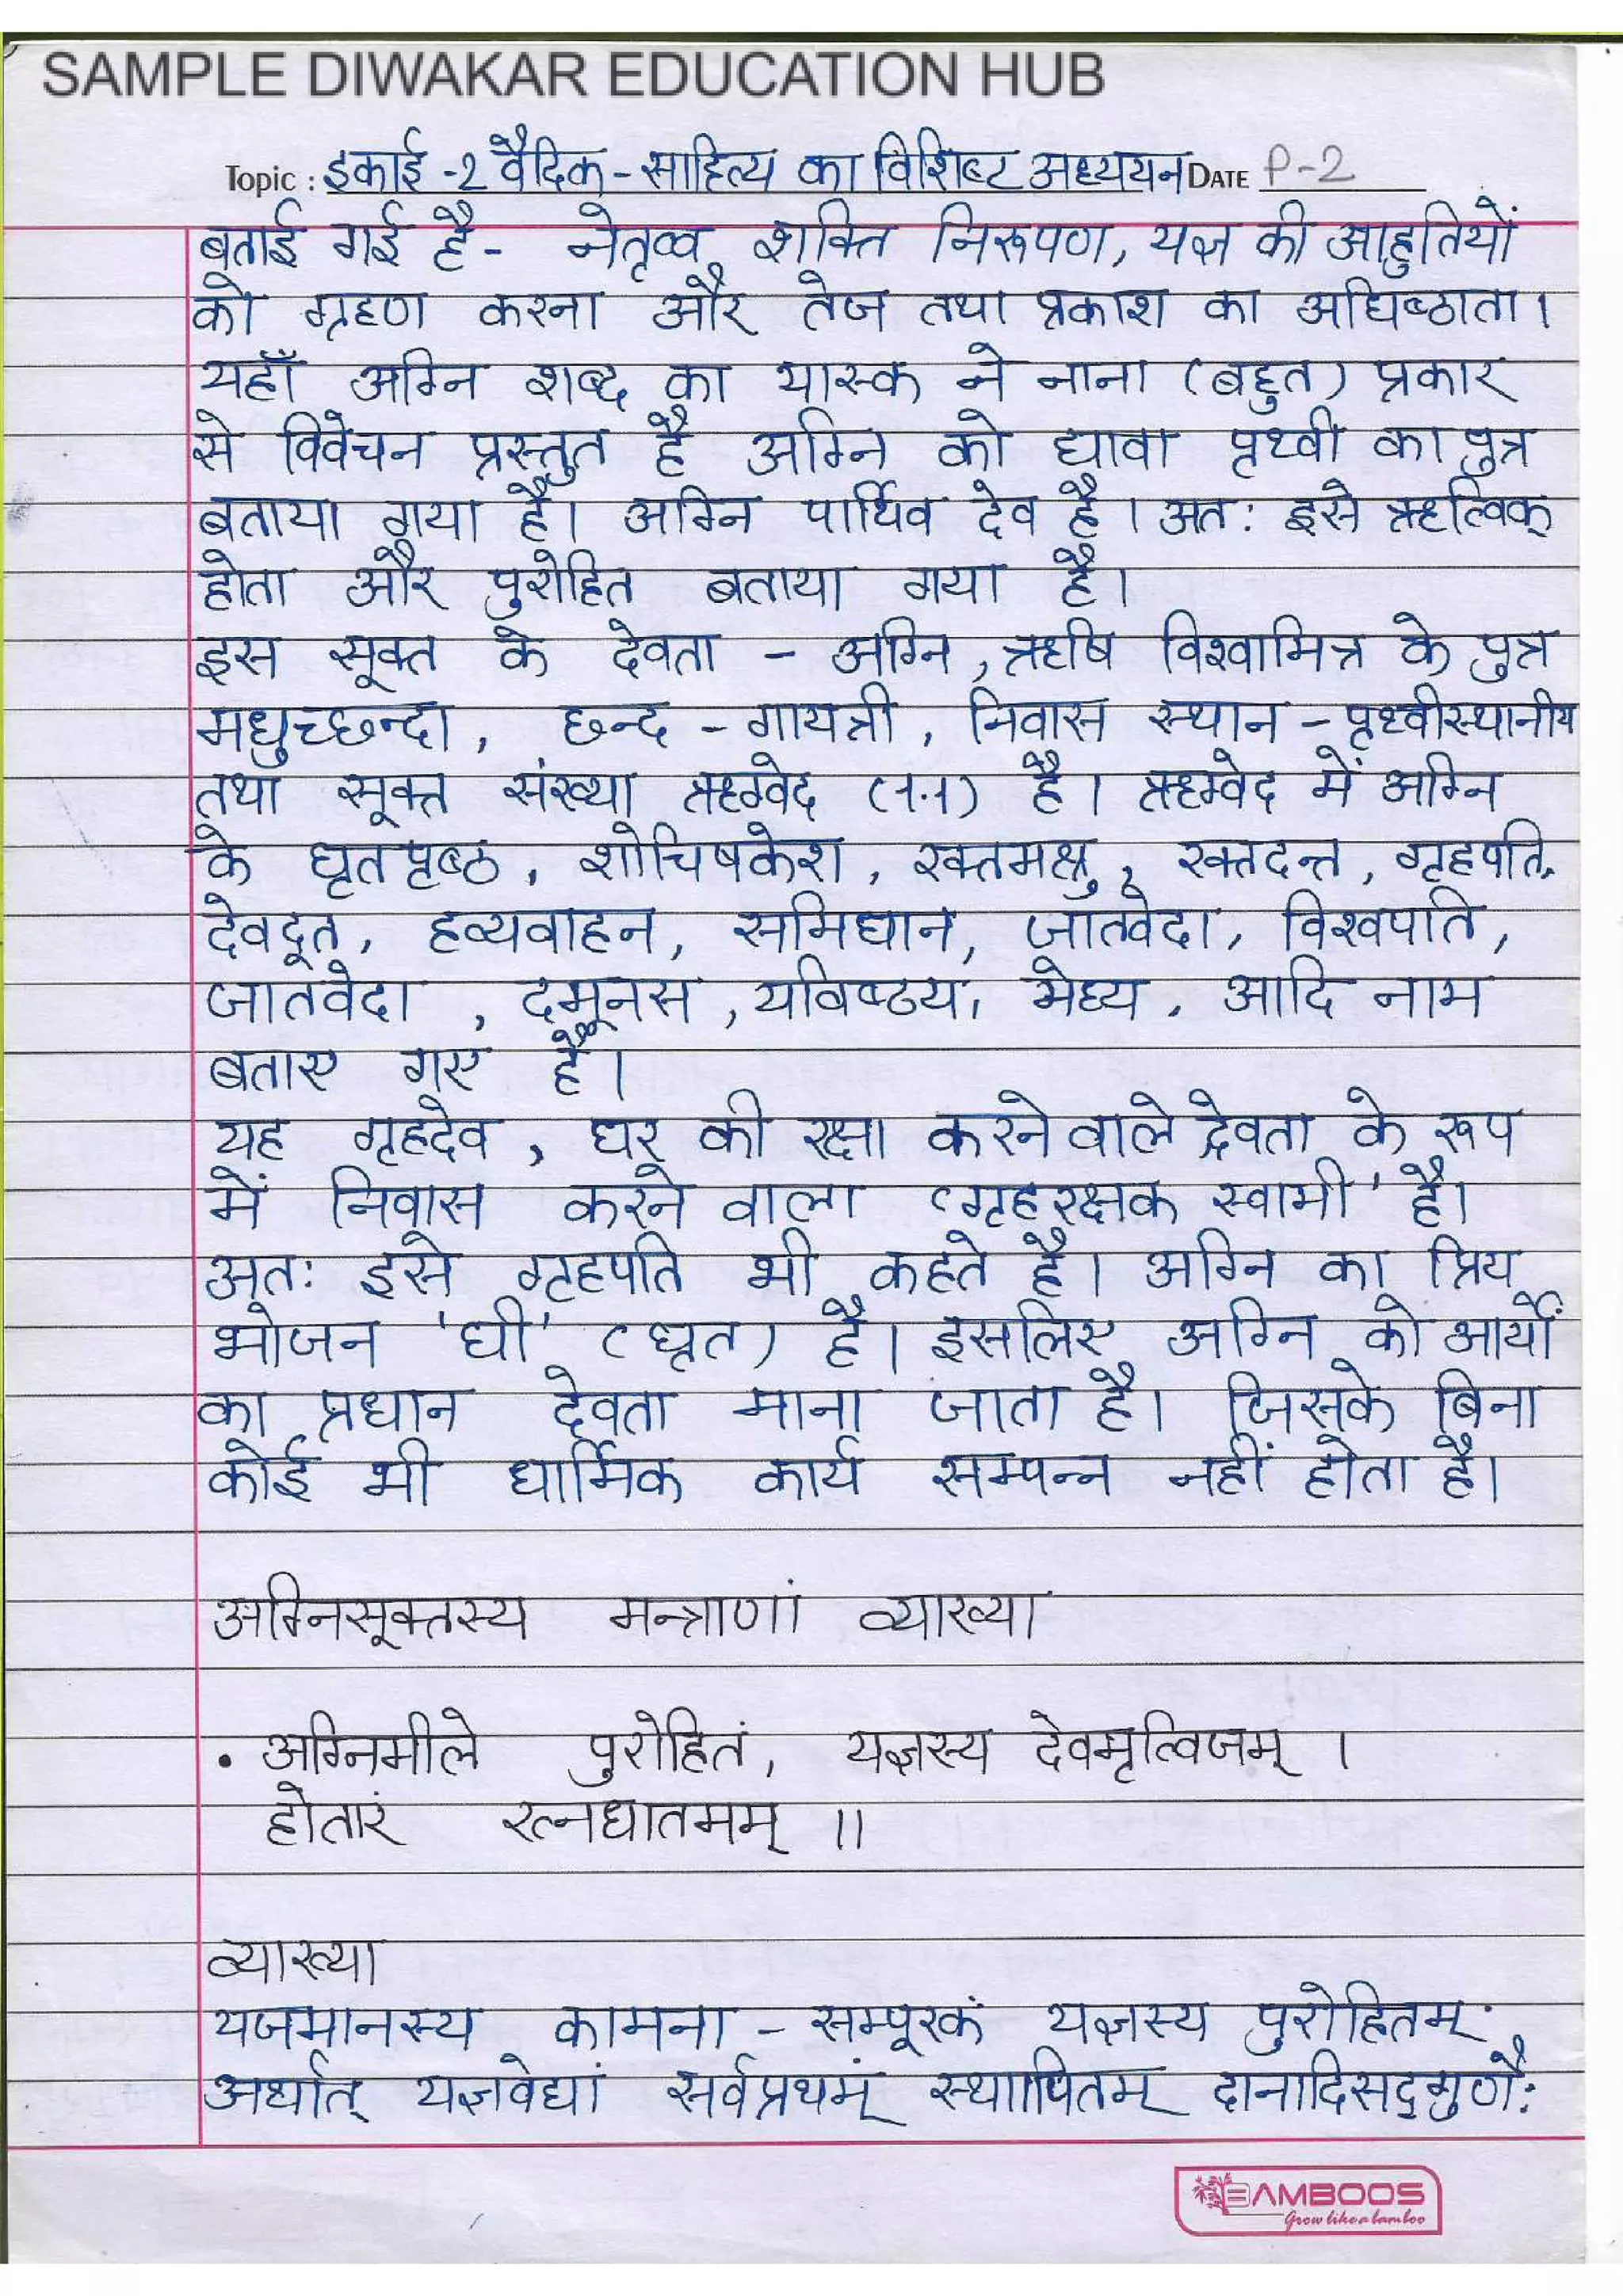 SAMPLE DIWAKAR EDUCATION HUB
Topic : इकाई -2 वैदिक - साहित्य का विशिष्ट अध्ययन DATE P-2
बताई गई है - नेतृत्व शक्ति निरूपण, यज्ञ की आहुतियों
को ग्रहण करना और तेज तथा प्रकाश का अधिष्ठाता।
यहाँ अग्नि शब्द का यास्क ने नाना (बहुत) प्रकार
से विवेचन प्रस्तुत है अग्नि को द्यावा पृथ्वी का पुत्र
बताया गया है। अग्नि पार्थिव देव है। अतः इसे ऋत्विक्
होता और पुरोहित बताया गया है।
इस सूक्त के देवता - अग्नि, ऋषि विश्वामित्र के पुत्र
मधुच्छन्दा, छन्द - गायत्री, निवास स्थान - पृथ्वीस्थानीय
तथा सूक्त संख्या ऋग्वेद (1.1) है। ऋग्वेद में अग्नि
के घृतपृष्ठ, शोचिषकेश, रक्तमश्रु, रक्तदन्त, गृहपति,
देवदूत, हव्यवाहन, समिधान, जातवेदा, विश्वपति,
जातवेदा, दमूनस, यविष्ठय, मेध्य, आदि नाम
बताए गए हैं।
यह गृहदेव, घर की रक्षा करने वाले देवता के रूप
में निवास करने वाला 'गृहरक्षक स्वामी' है।
अतः इसे गृहपति भी कहते है। अग्नि का प्रिय
भोजन 'घी' (घृत) है। इसलिए अग्नि को आर्यों
का प्रधान देवता माना जाता है। जिसके बिना
कोई भी धार्मिक कार्य सम्पन्न नहीं होता है।
अग्निसूक्तस्य मन्त्राणां व्याख्या
• अग्निमीले पुरोहितं, यज्ञस्य देवमृत्विजम् ।
होतारं रत्नधातमम् ।।
व्याख्या
यजमानस्य कामना - सम्पूरकं यज्ञस्य पुरोहितम्
अर्थात् यज्ञवेद्यां सर्वप्रथमं स्थापितम् दानादिसद्गुणैः
BAMBOOS
Grow like a bamboo